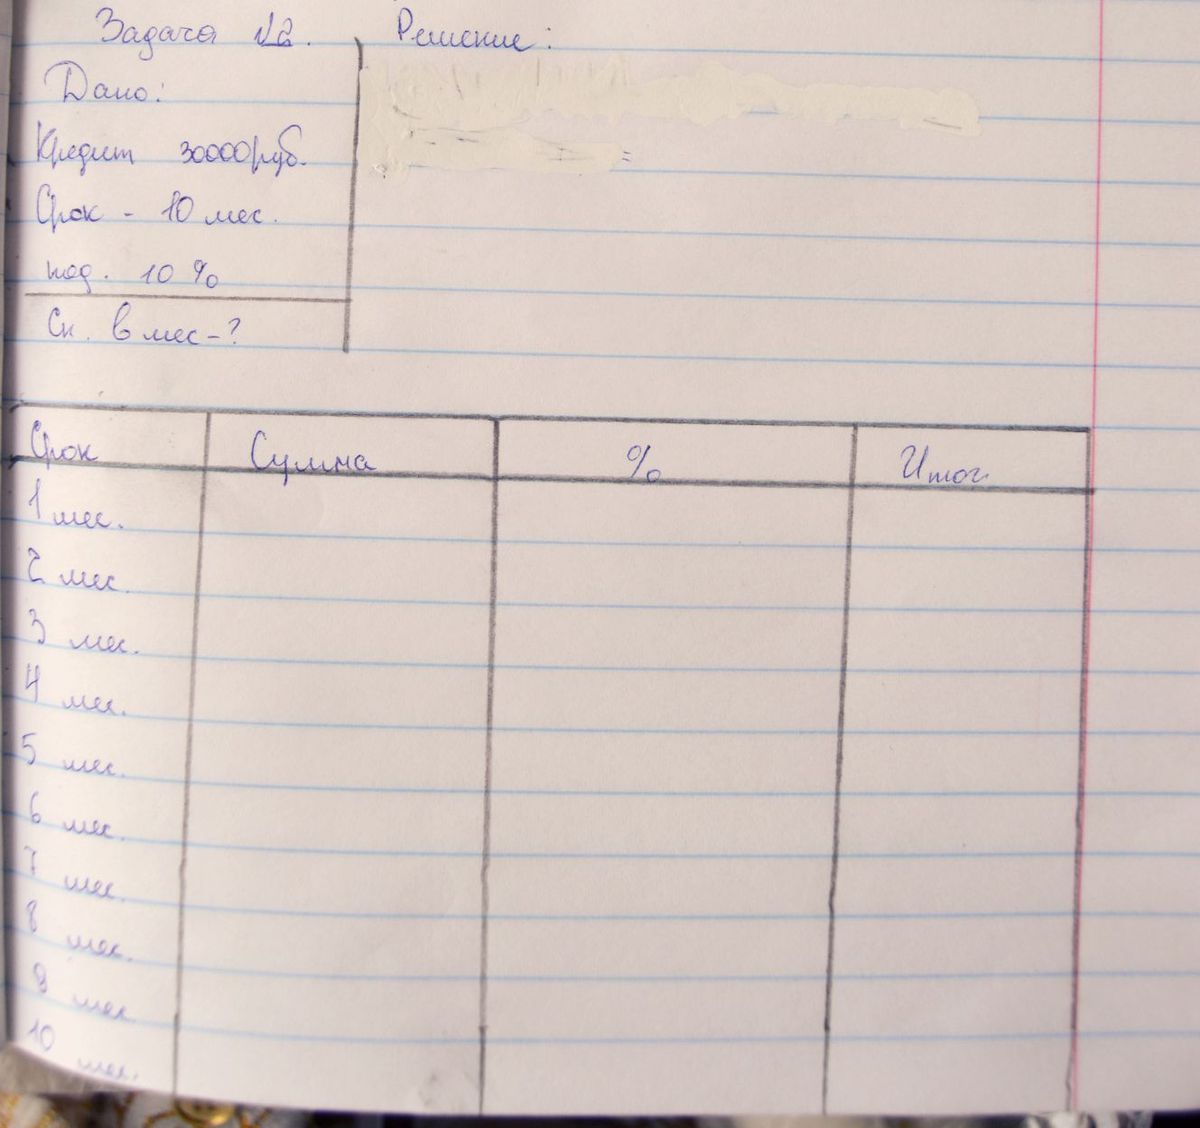 Задача №2.
Решение:
Дано:
Кредит 30000 руб.
Срок - 10 мес.
под. 10 %
Ск. в мес - ?
=
Срок Сумма % Итог
1 мес.
2 мес.
3 мес.
4 мес.
5 мес.
6 мес.
7 мес.
8 мес.
9 мес.
10 мес.